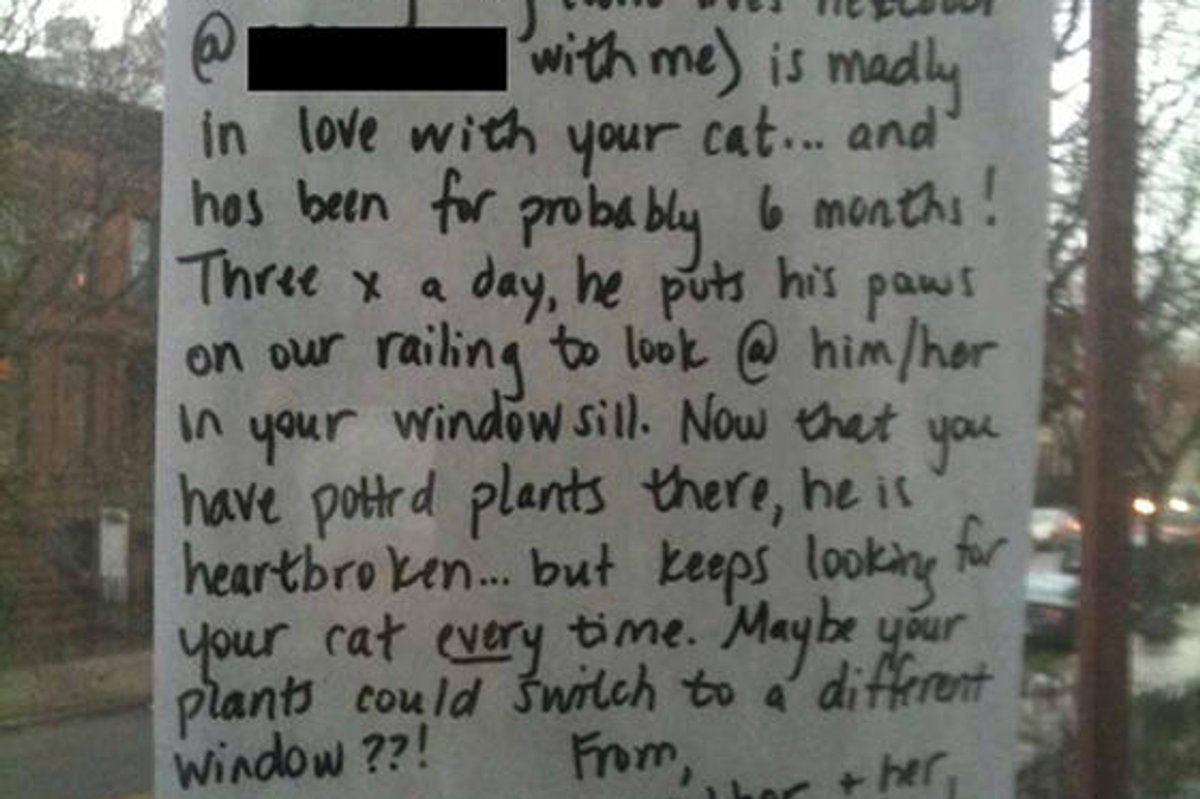 lives nextdoor
@ with me) is madly
in love with your cat... and
has been for probably 6 months!
Three x a day, he puts his paws
on our railing to look @ him/her
in your windowsill. Now that you
have pottrd plants there, he is
heartbroken... but keeps looking for
your cat every time. Maybe your
plants could switch to a different
window??! From,
+ her,